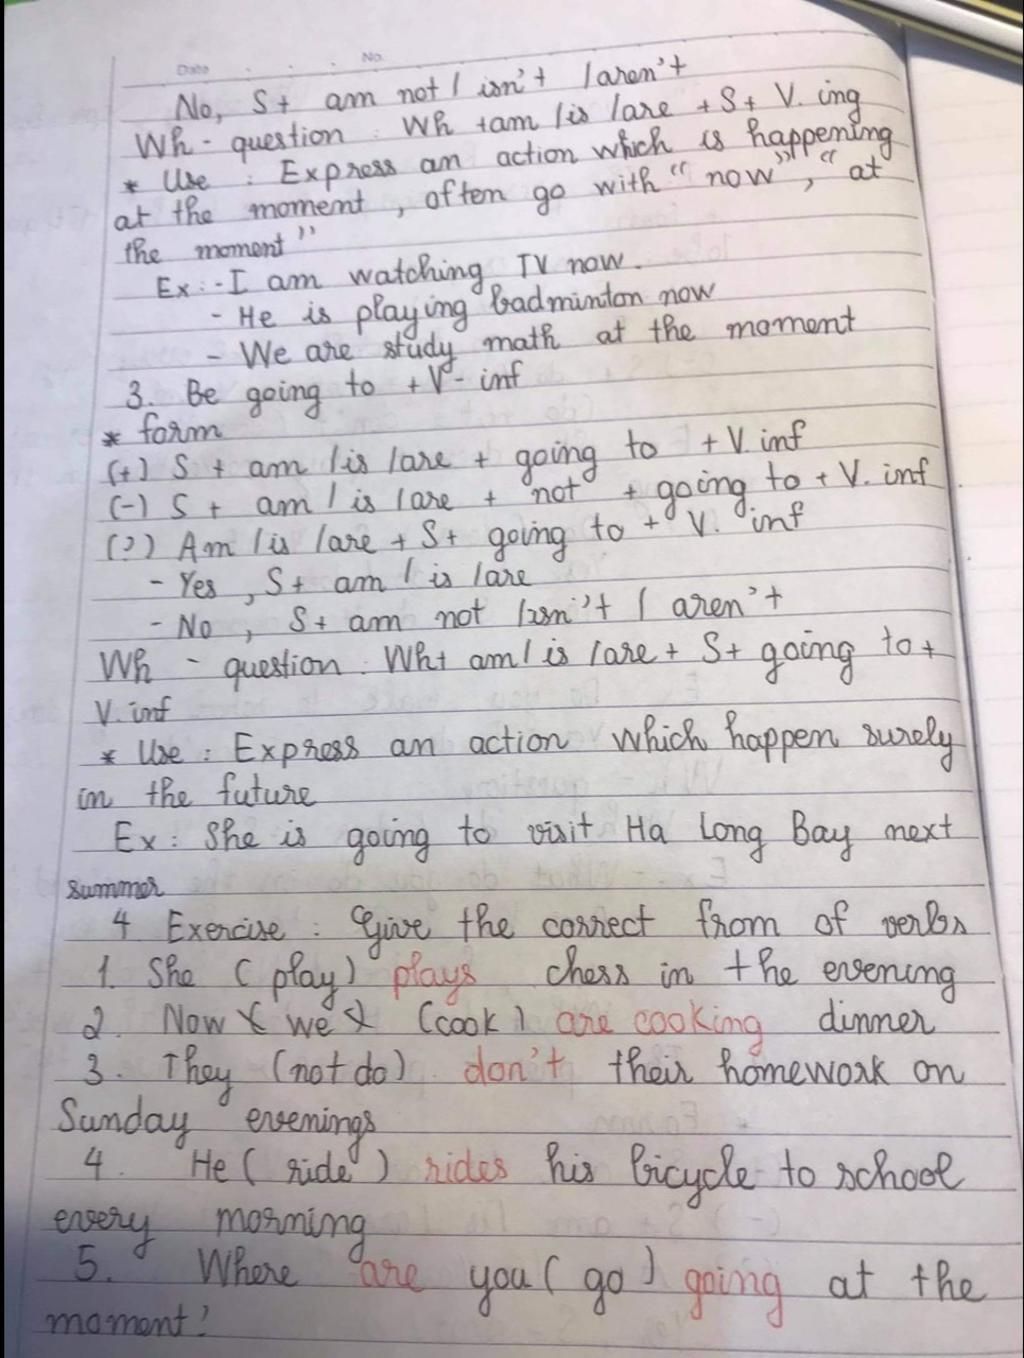 Date No.
No, S+ am not / isn't / aren't
Wh - question : Wh +am /is /are +S+ V. ing
* Use : Express an action which is happening
at the moment , often go with " now" , " at
the moment "
Ex : - I am watching TV now.
- He is playing badminton now
- We are study math at the moment
3. Be going to +V- inf
* form
(+) S + am /is /are + going to +V. inf
(-) S + am / is /are + not + going to + V. inf
(?) Am /is /are + S+ going to + V. inf
- Yes , S+ am / is /are
- No , S+ am not /isn't / aren't
Wh - question . Wh+ am / is /are + S+ going to +
V. inf
* Use : Express an action which happen surely
in the future
Ex : She is going to visit Ha Long Bay next
summer
4 Exercise : Give the correct from of verbs
1. She ( play) plays chess in the evening
2. Now we (cook) are cooking dinner
3. They (not do) don't their homework on
Sunday evenings
4. He ( ride ) rides his bicycle to school
every morning
5. Where are you ( go ) going at the
moment?